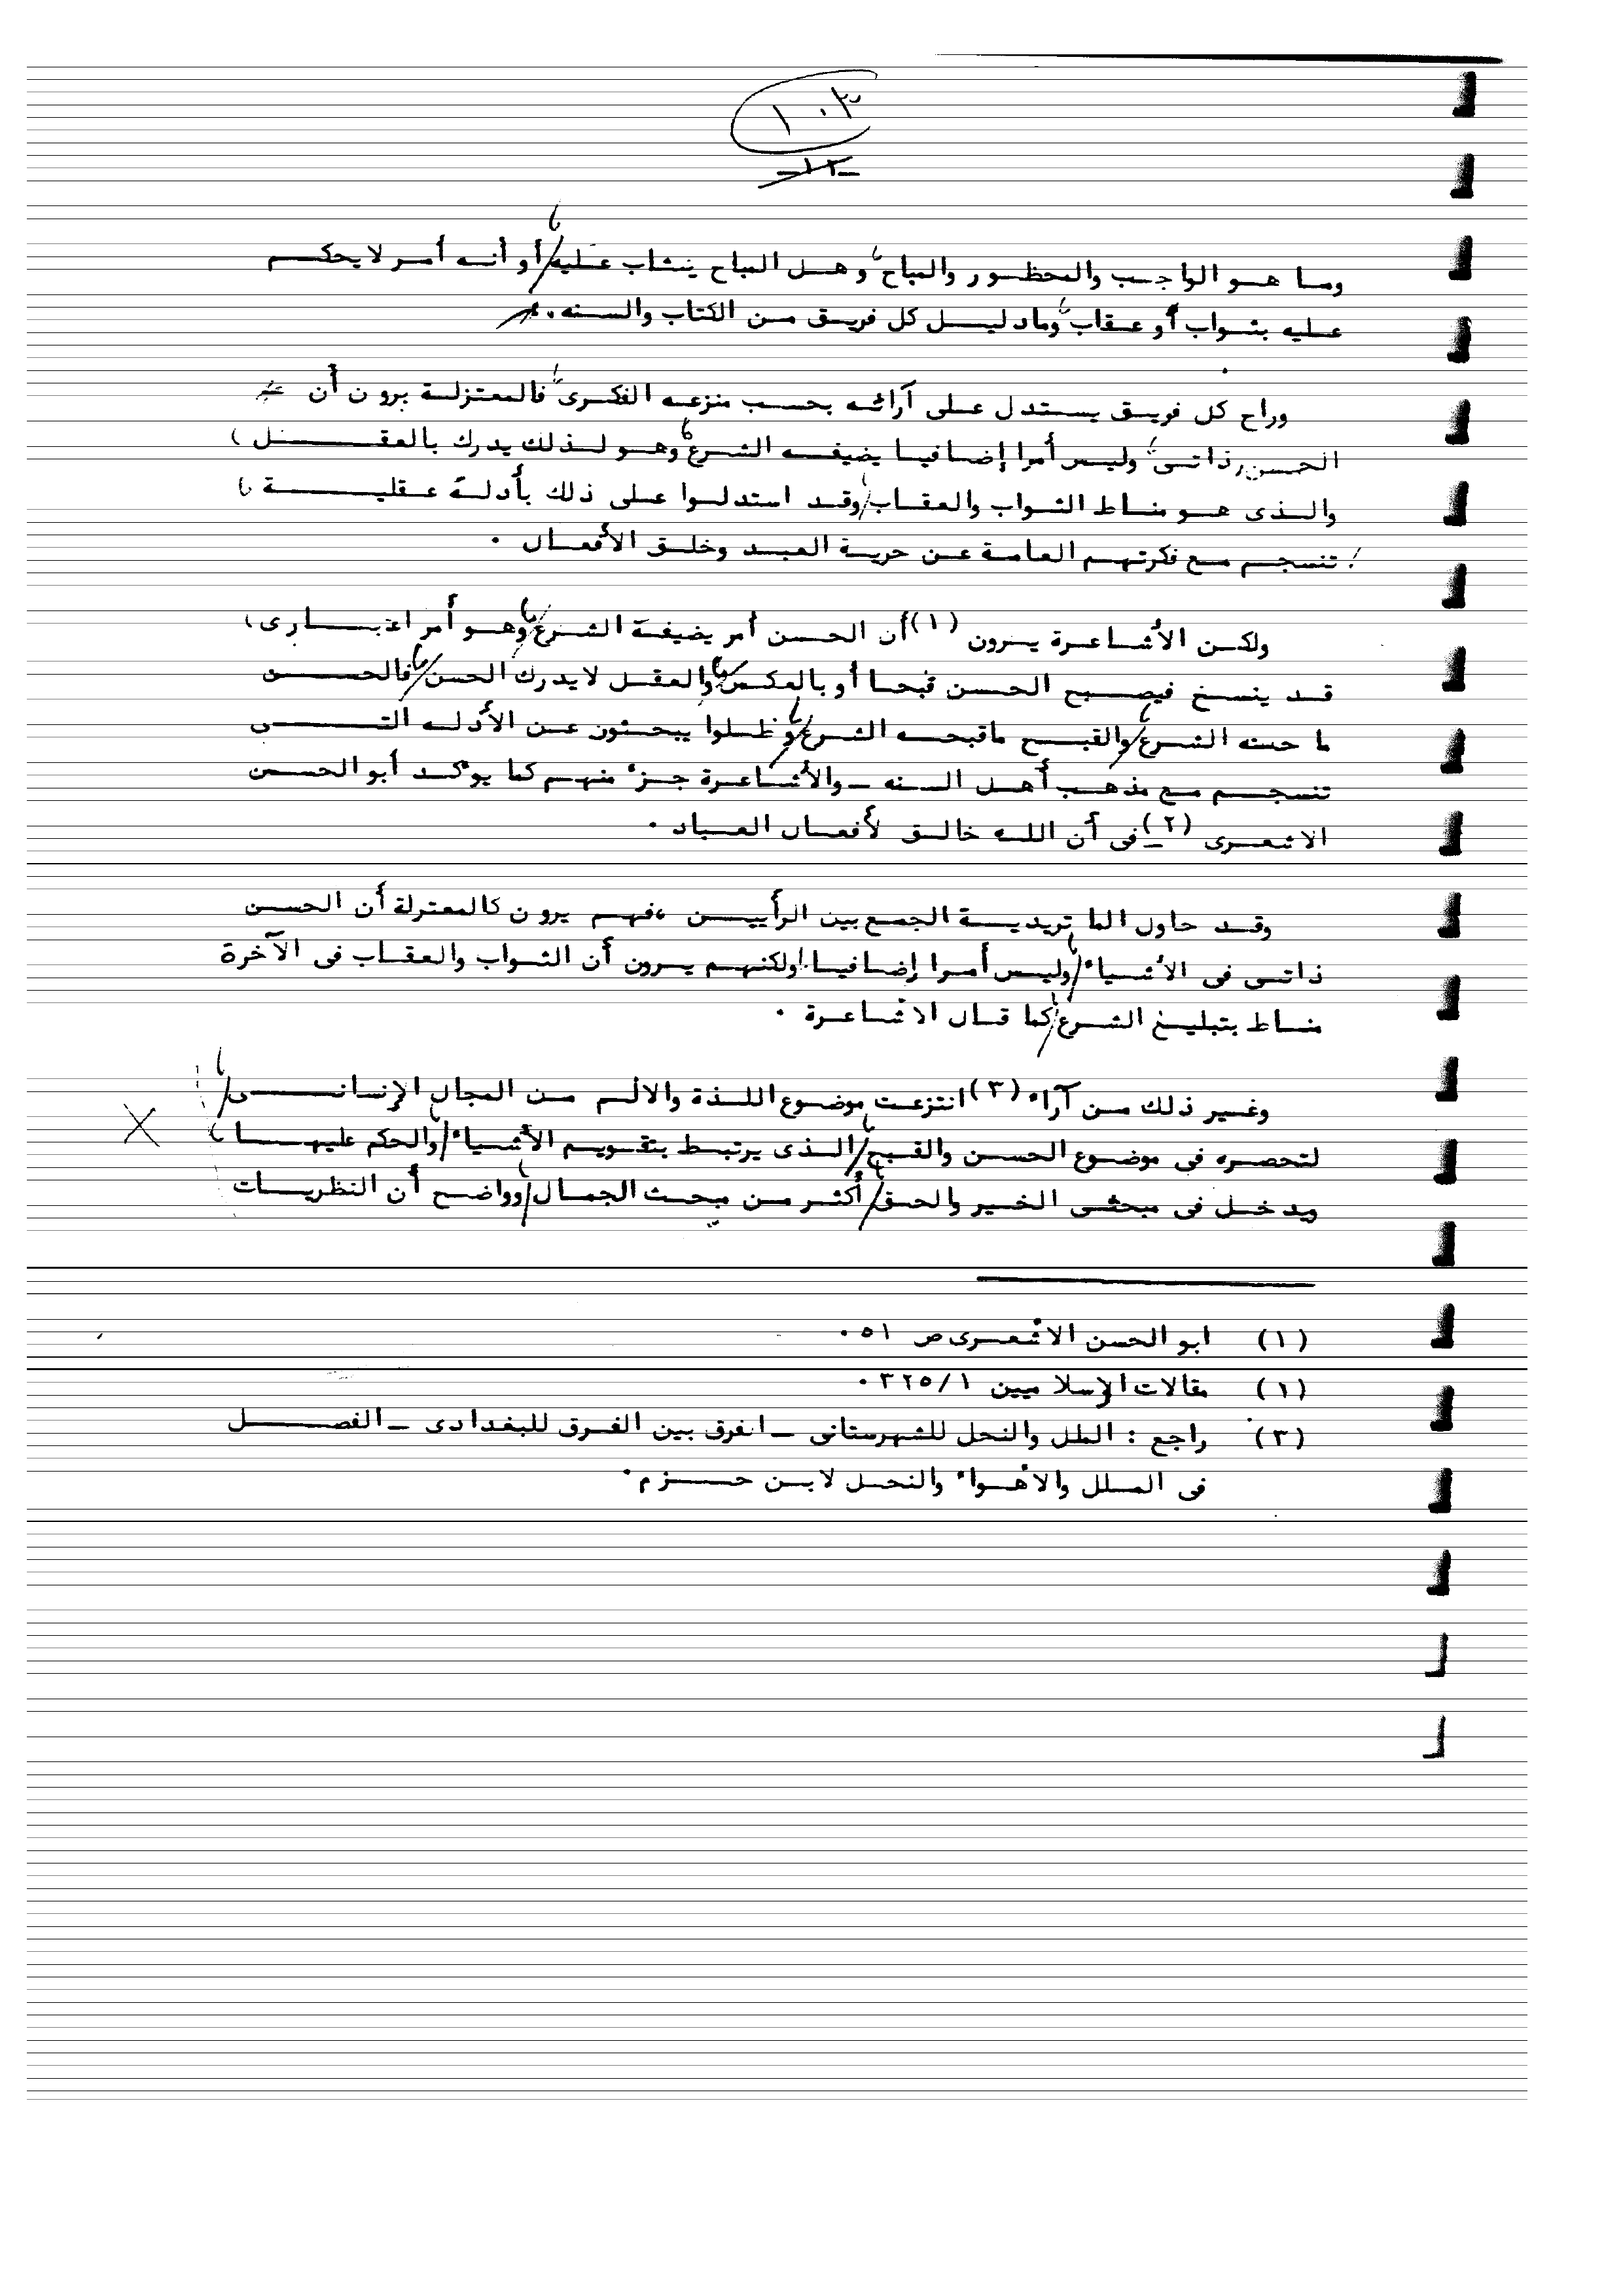 ١٠٣
-١٢-
وما هو الواجب والمحظور والمباح، وهل المباح يثاب عليه، أو أنه أمر لا يحكم
عليه بثواب أو عقاب، وما دليل كل فريق من الكتاب والسنه .
وراح كل فريق يستدل على آرائه بحسب منزعه الفكرى، فالمعتزلة يرون أن
الحسن ذاتى، وليس أمرا إضافيا يضيفه الشرع، وهو لذلك يدرك بالعقل،
والذى هو مناط الثواب والعقاب، وقد استدلوا على ذلك بأدلة عقلية،
تنسجم مع فكرتهم العامة عن حرية العبد وخلق الأفعال .
ولكن الأشاعرة يرون (١) أن الحسن أمر يضيفة الشرع، وهو أمر اعتبارى،
قد ينسخ فيصبح الحسن قبحا أو بالعكس، والعقل لا يدرك الحسن، فالحسن
ما حسنه الشرع، والقبح ماقبحه الشرع، وظلوا يبحثون عن الأدله التى
تنسجم مع مذهب أهل السنه - والأشاعرة جزء منهم كما يؤكد أبو الحسن
الاشعرى (٢) - فى أن الله خالق لأفعال العباد .
وقد حاول الماتريدية الجمع بين الرأيين ، فهم يرون كالمعتزلة أن الحسن
ذاتى فى الأشياء، وليس أمرا إضافيا، ولكنهم يرون أن الثواب والعقاب فى الآخرة
مناط بتبليغ الشرع، كما قال الأشاعرة .
وغير ذلك من آراء (٣) انتزعت موضوع اللذة والالم من المجال الإنسانى،
لتحصره فى موضوع الحسن والقبح، الذى يرتبط بتقويم الأشياء، والحكم عليها،
ويدخل فى مبحثى الخير والحق، أكثر من مبحث الجمال، وواضح أن النظريات
(١) ابو الحسن الأشعرى ص ٥١ .
(١) مقالات الإسلاميين ٣٢٥/١ .
(٣) راجع : الملل والنحل للشهرستانى - الفرق بين الفرق للبغدادى - الفصل
فى الملل والأهواء والنحل لابن حزم .